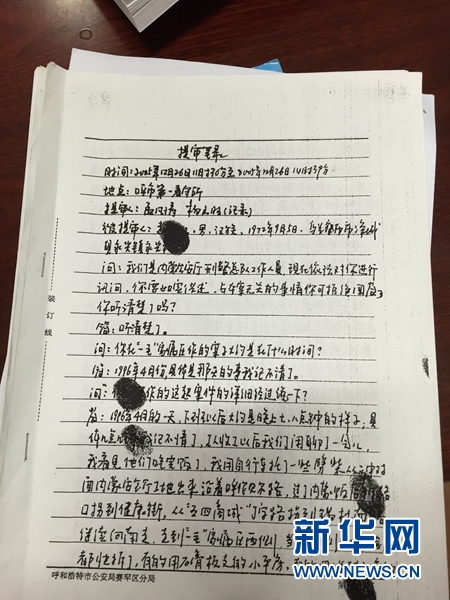 提审笔录
时间：2005年12月26日11时30分至2005年12月26日14时39分
地点：呼市第一看守所
提审人： （记录）
被提审人： ，男，汉族，1972年9月5日，乌兰察布市凉城
县永兴镇永兴
问：我们是内蒙公安厅刑警总队工作人员，现在依法对你进行
讯问，你要如实供述，与本案无关的事情你可拒绝回答，
你听清楚了吗？
答：听清楚了。
问：你在"一毛"家属区作的案子大约是在什么时间？
答：1996年4月份，具体是那天的事我记不清了。
问： 你作的这起案件的详细经过说一下？
答：1996年4月的一天，下 以后大约是晚上七、八点钟的样子，具
体几点 我记不清了，工人收工以后我们闲聊了一会儿，
我看见他们吃完饭了，我用自行车托了一些劈柴从
面内蒙公安厅工地出来沿着呼伦贝尔路，过了内蒙饭店 路
口拐到健康街，从"五四商城"丁字路拐到锡林
继续向南走，走到"一毛"家属区西侧，
都快拆了，有的用石膏板支的小平房，
装订线
呼和浩特市公安局赛罕区分局
新华网
WWW.NEWS.CN